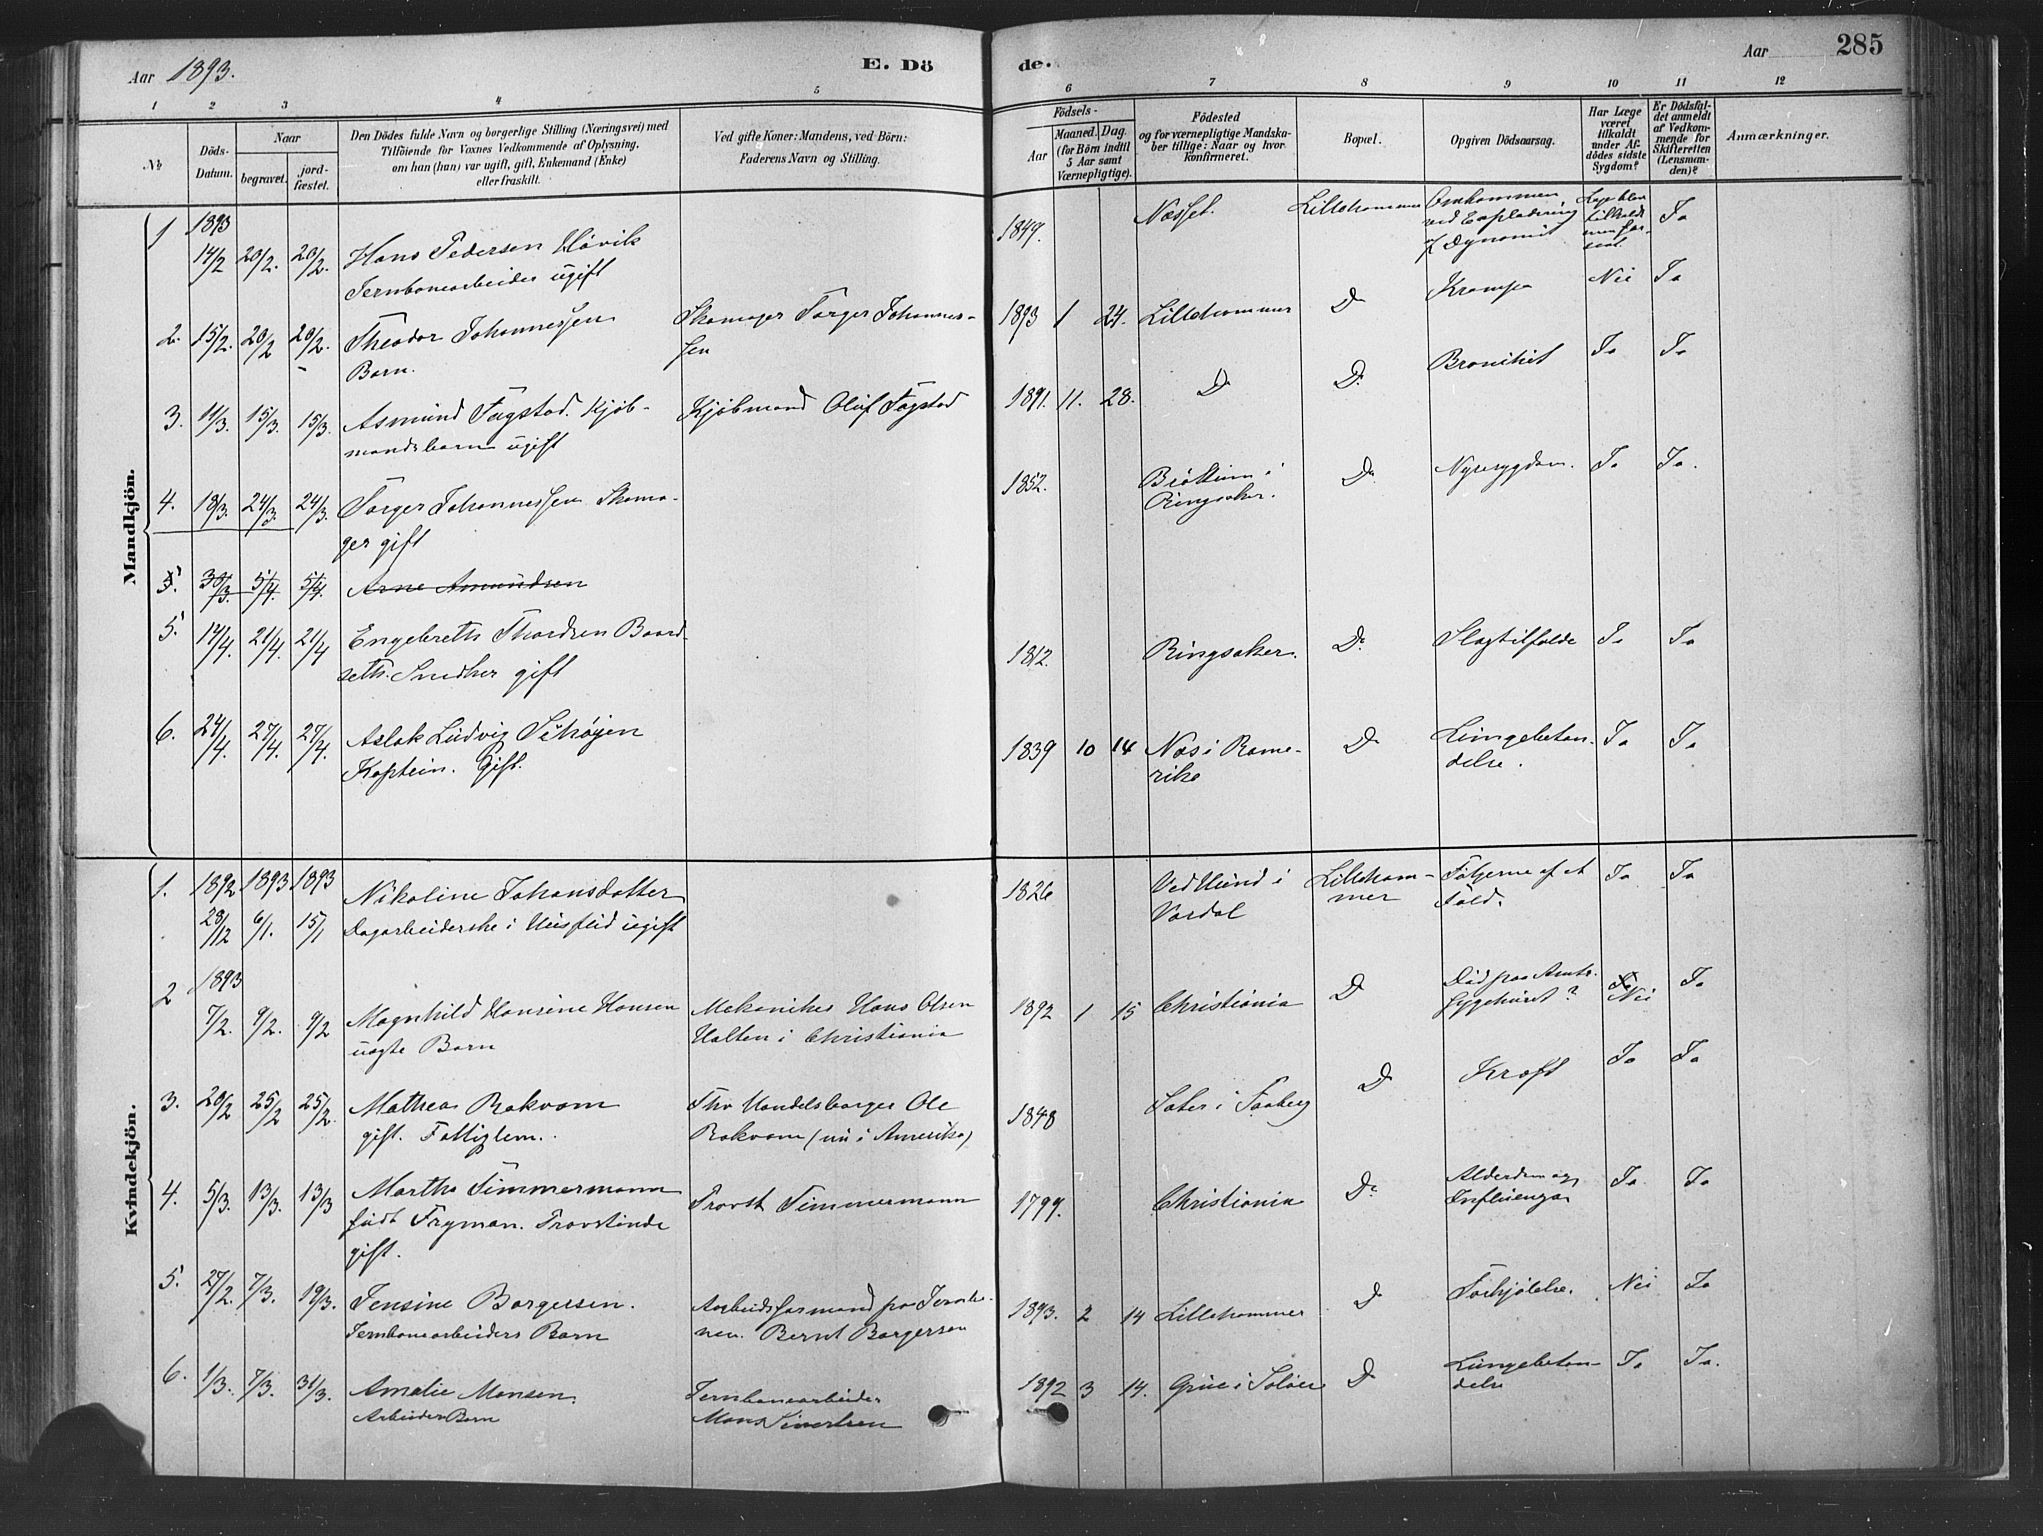 Aar 1893.
E. Dö
de.
Aar
285
1
2
3
4
5
6
7
8
9
10
11
12
No
Döds-
Datum.
Naar
begravet.
jord-
fæstet.
Den Dödes fulde Navn og borgerlige Stilling (Næringsvei) med
Tilföiende for Voxnes Vedkommende af Oplysning,
om han (hun) var ugift, gift, Enkemand (Enke)
eller fraskilt.
Ved gifte Koner: Mandens, ved Börn:
Faderens Navn og Stilling.
Födsels-
Aar
Maaned.
Dag.
(for Börn indtil
5 Aar samt
Værnepligtige).
Födested
og for værnepligtige Mandska-
ber tillige: Naar og hvor
konfirmeret.
Bopæl.
Opgiven Dödsaarsag.
Har Læge
været
tilkaldt
under Af-
dödes sidste
Sygdom?
Er Dödsfal-
det anmeldt
af Vedkom-
mende for
Skifteretten
(Lensman-
den)?
Anmærkninger.
Mandkjön.
1 1893
14/2 20/2. 20/2. Hans Pedersen Hövik
Jernbanearbeider ugift
1849. Næsset. Lillehammer Omkommen
ved Explodering
af Dynamit
Læge blev
tilkaldt
men for
sent
Ja
2. 15/2. 20/2 20/2. Theodor Johannessen
Barn.
Skomager Torger Johannes-
sen
1893 1 24. Lillehammer Do Krampe Nei Ja
3. 11/3. 15/3. 15/3. Asmund Fagstad. Kjöb-
mandsbarn ugift
Kjöbmand Oluf Fagstad
1891. 11. 28. Do Do Bronchit Ja Ja
4. 18/3. 24/3. 24/3. Torger Johannessen Skoma-
ger gift
1852. Bröttum i
Ringsaker.
Do Nyresygdom. Ja Ja.
5. 30/3. 5/4. 5/4. Arne Amundsen
5. 14/4. 21/4. 21/4 Engebreth Thordsen Baard-
seth. Snedker gift
1812. Ringsaker. Do Slagtilfælde Ja Ja
6. 24/4. 27/4. 27/4. Aslak Ludvig Schøyen
Kaptein. Gift.
1839 10 14 Næs i Rome-
rike
Do Lungebetæn-
delse.
Ja Ja
Kvindekjön.
1. 1892 1893 1893
28/12 6/1. 15/1 Nikoline Johansdatter
Dagarbeiderske i Husflid ugift
1826 Ved Hund i
Vardal
Lilleham-
mer
Følgerne af et
Fald.
Ja Ja
2 1893
7/2. 9/2. 9/2 Magnhild Hansine Hansen
uægte Barn
Mekaniker Hans Olsen
Holten i Christiania
1892 1 15 Christiania Do Död paa Amts-
sygehuset?
Nei Ja
3. 20/2 25/2 25/2. Mathea Rakvam
gift. Fattiglem.
Fhv Handelsborger Ole
Rakvam (nu i Amerika)
1848 Sater i Faaberg Do Kræft Ja Ja
4. 5/3. 13/3. 13/3 Martha Timmermann
födt Fryman. Provstinde
gift.
Provst Timmermann
1799. Christiania Do Alderdom og
Influenza
Ja Ja
5. 27/2. 7/3. 19/3. Jensine Borgersen.
Jernbanearbeiders Barn
Arbeidsformand paa Jernba-
nen. Bernt Borgersen
1893. 2 14 Lillehammer Do Forkjölelse. Nei Ja
6. 1/3. 7/3. 31/3. Amalie Monsen.
Arbeiders Barn
Jernbanearbeider
Mons Sivertsen
1892 3 14. Grue i Solør Do Lungebetæn-
delse
Ja Ja.